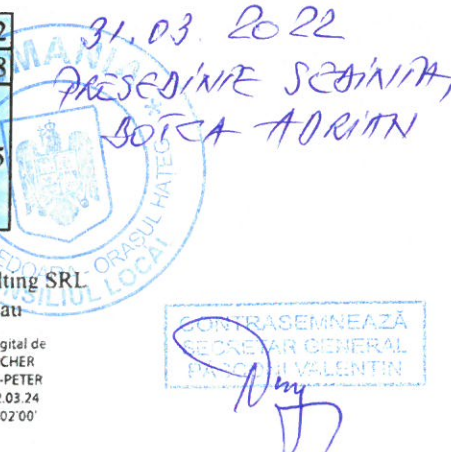 2
8
5
31.03.2022
PRESEDINTE SEDINTA,
BOTCA ADRIAN
ROMANIA
HUNEDOARA - ORASUL HATEG
CONSILIUL LOCAL
lting SRL
au
gital de
CHER
-PETER
.03.24
02'00'
CONTRASEMNEAZĂ
SECRETAR GENERAL
VALENTIN